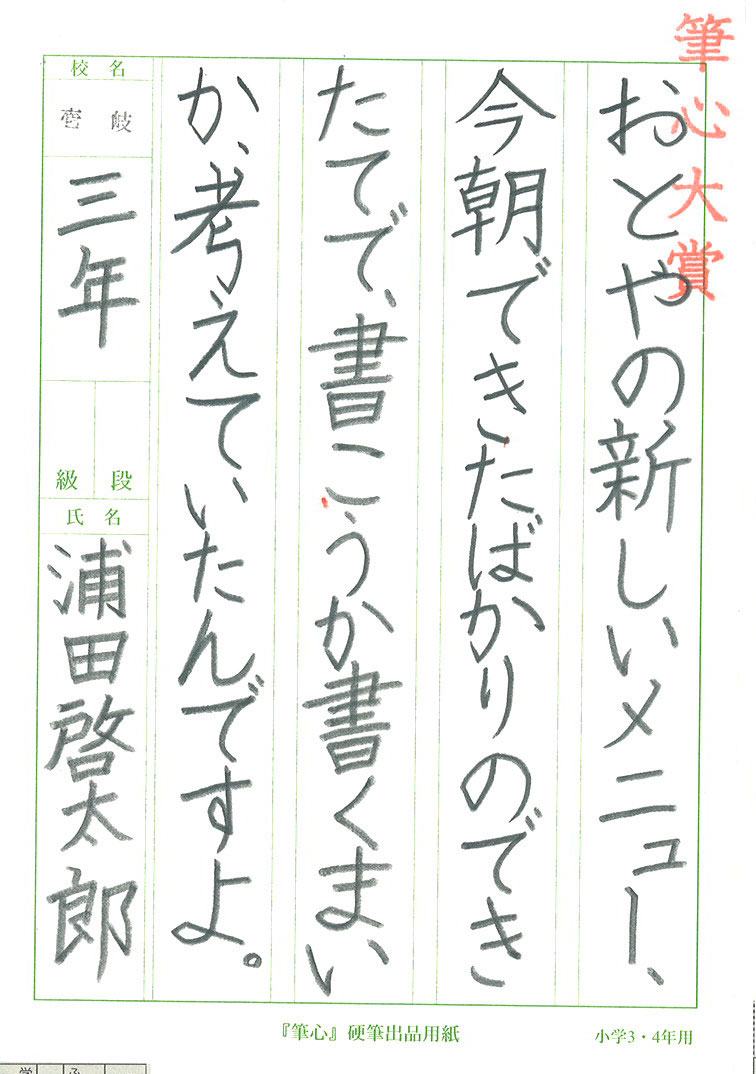 筆心大賞
おとやの新しいメニュー、
今朝できたばかりのでき
たてで、書こうか書くまい
か、考えていたんですよ。
校名
壱岐
三年
級段
氏名
浦田啓太郎
『筆心』硬筆出品用紙
小学3・4年用